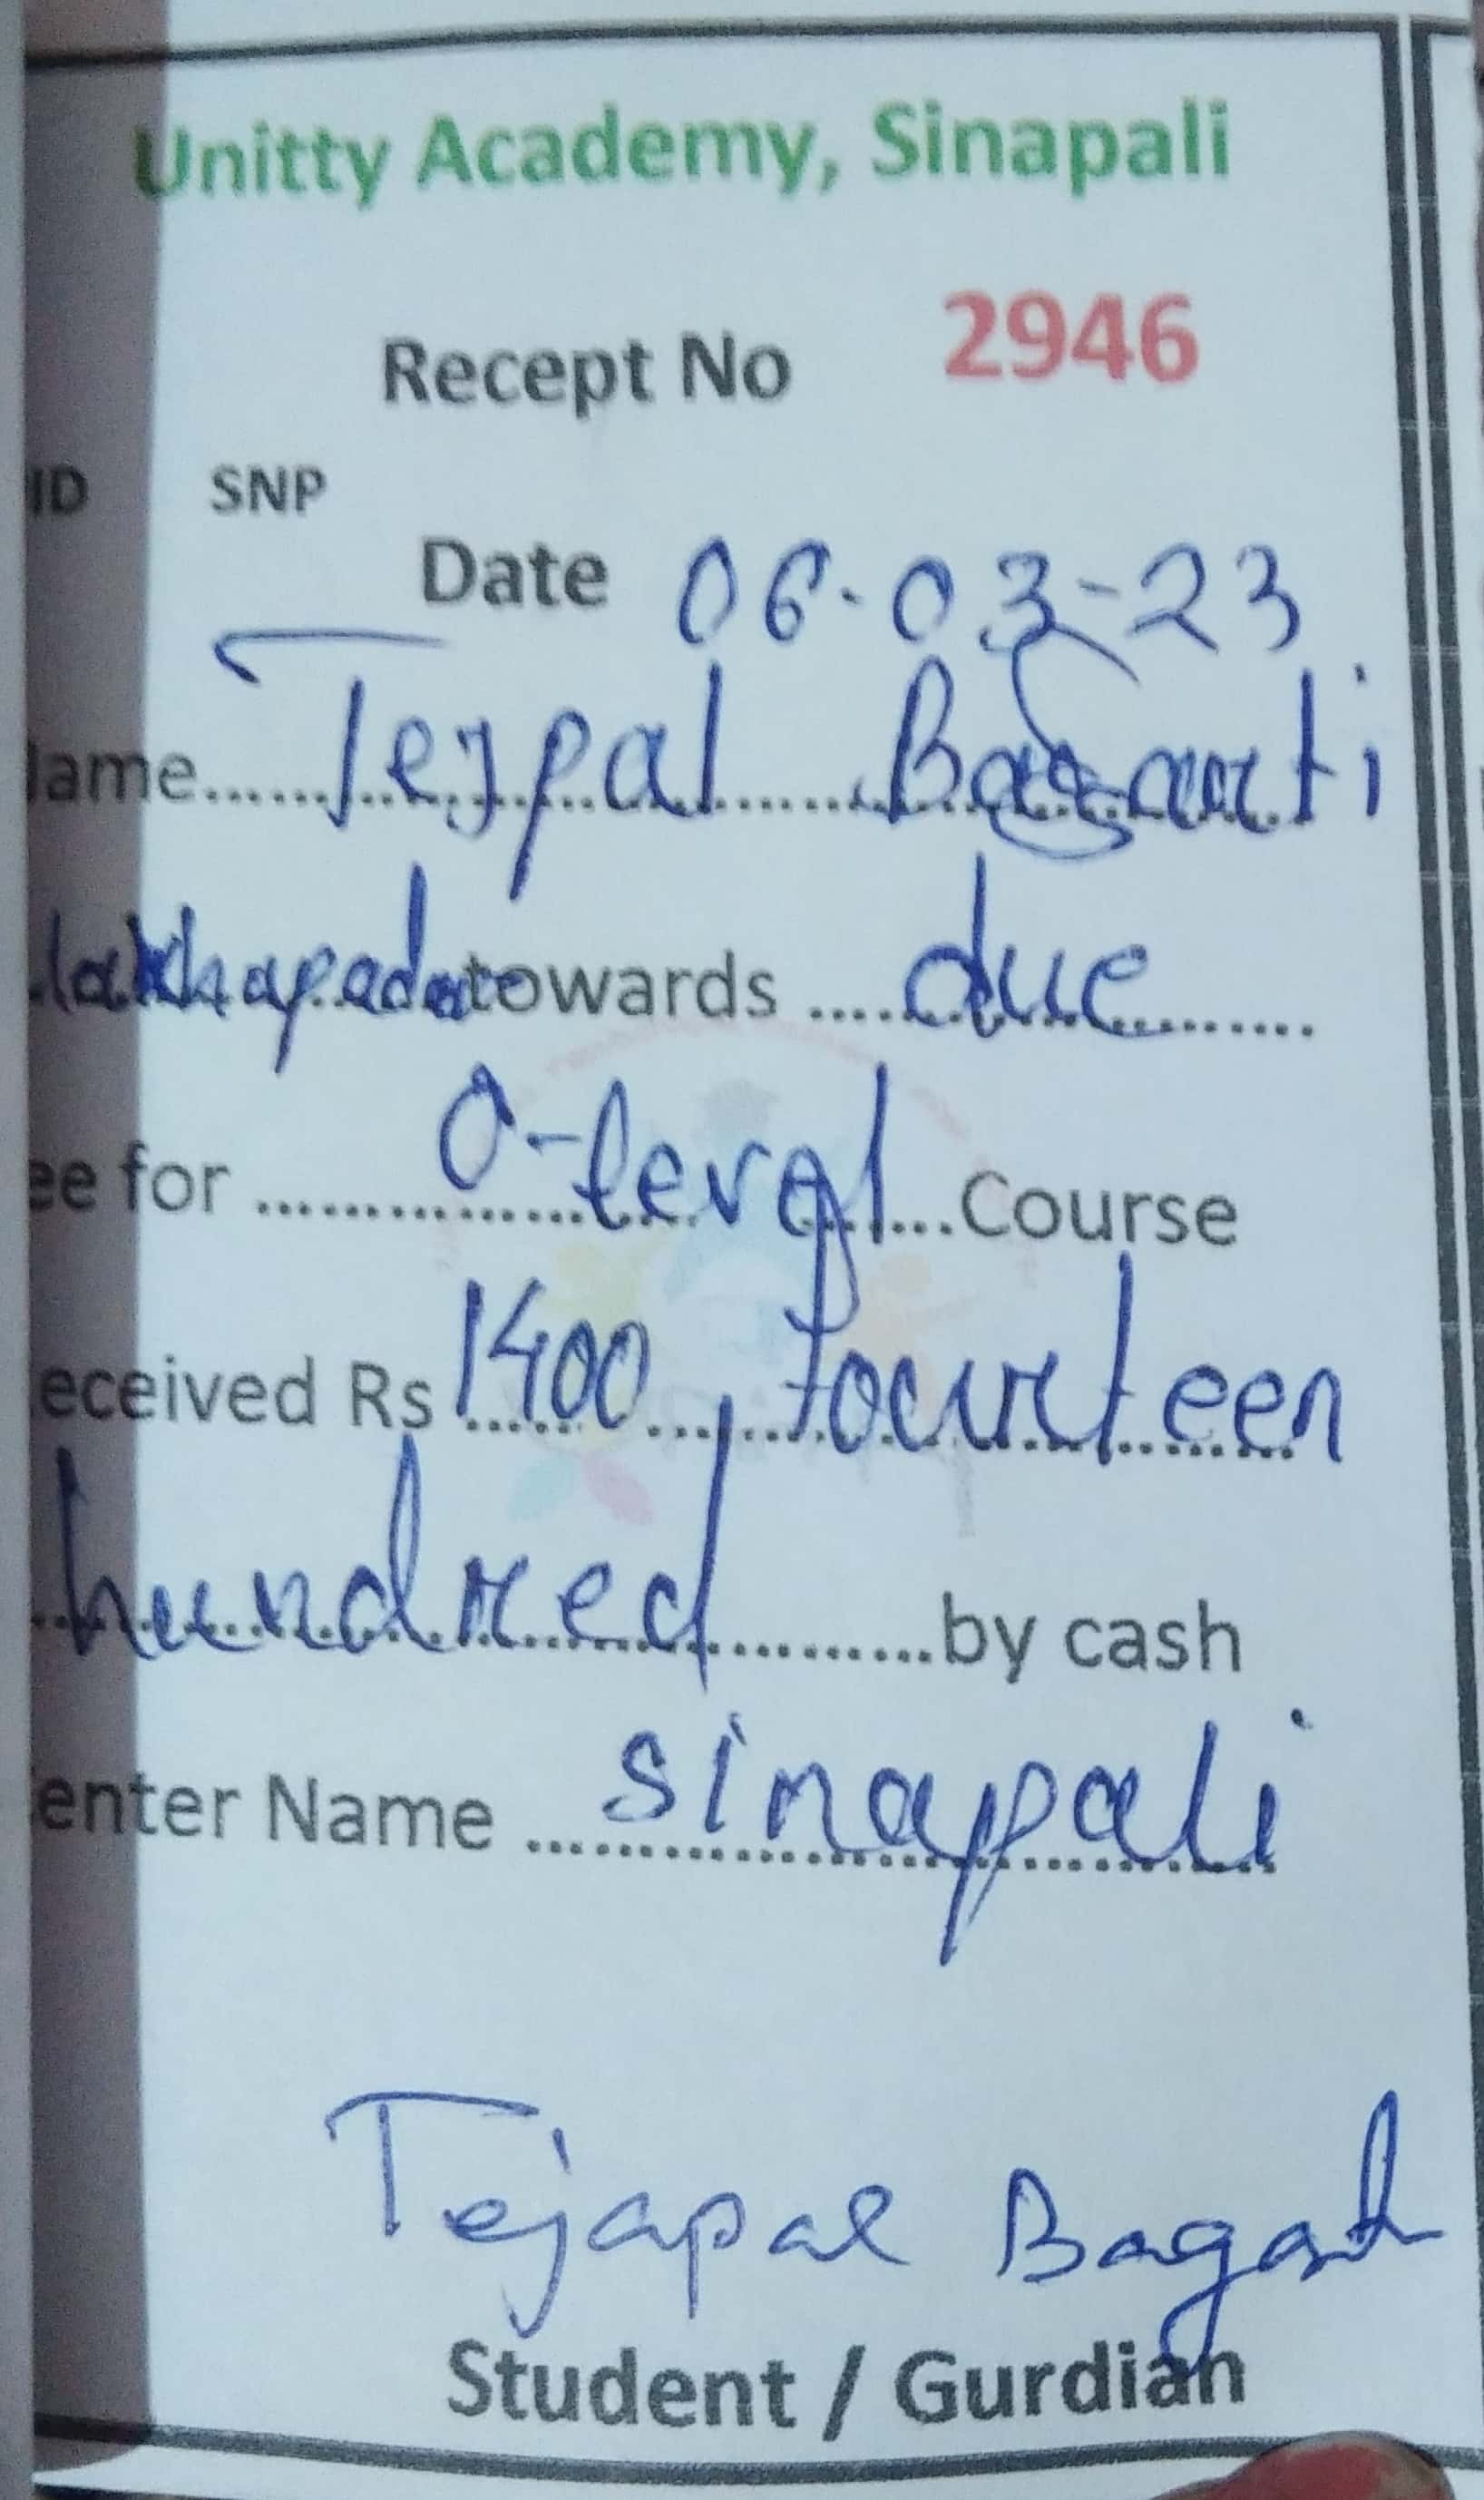 Unitty Academy, Sinapali
Recept No 2946
ID SNP
Date 06-03-23
ame...... Tejpal Bagarti
lakhapada towards .... due ......
ee for ...... O-level ...Course
eceived Rs 1400, fourteen
hundred ......by cash
enter Name ...... Sinapali
Tejapal Bagarti
Student / Gurdian